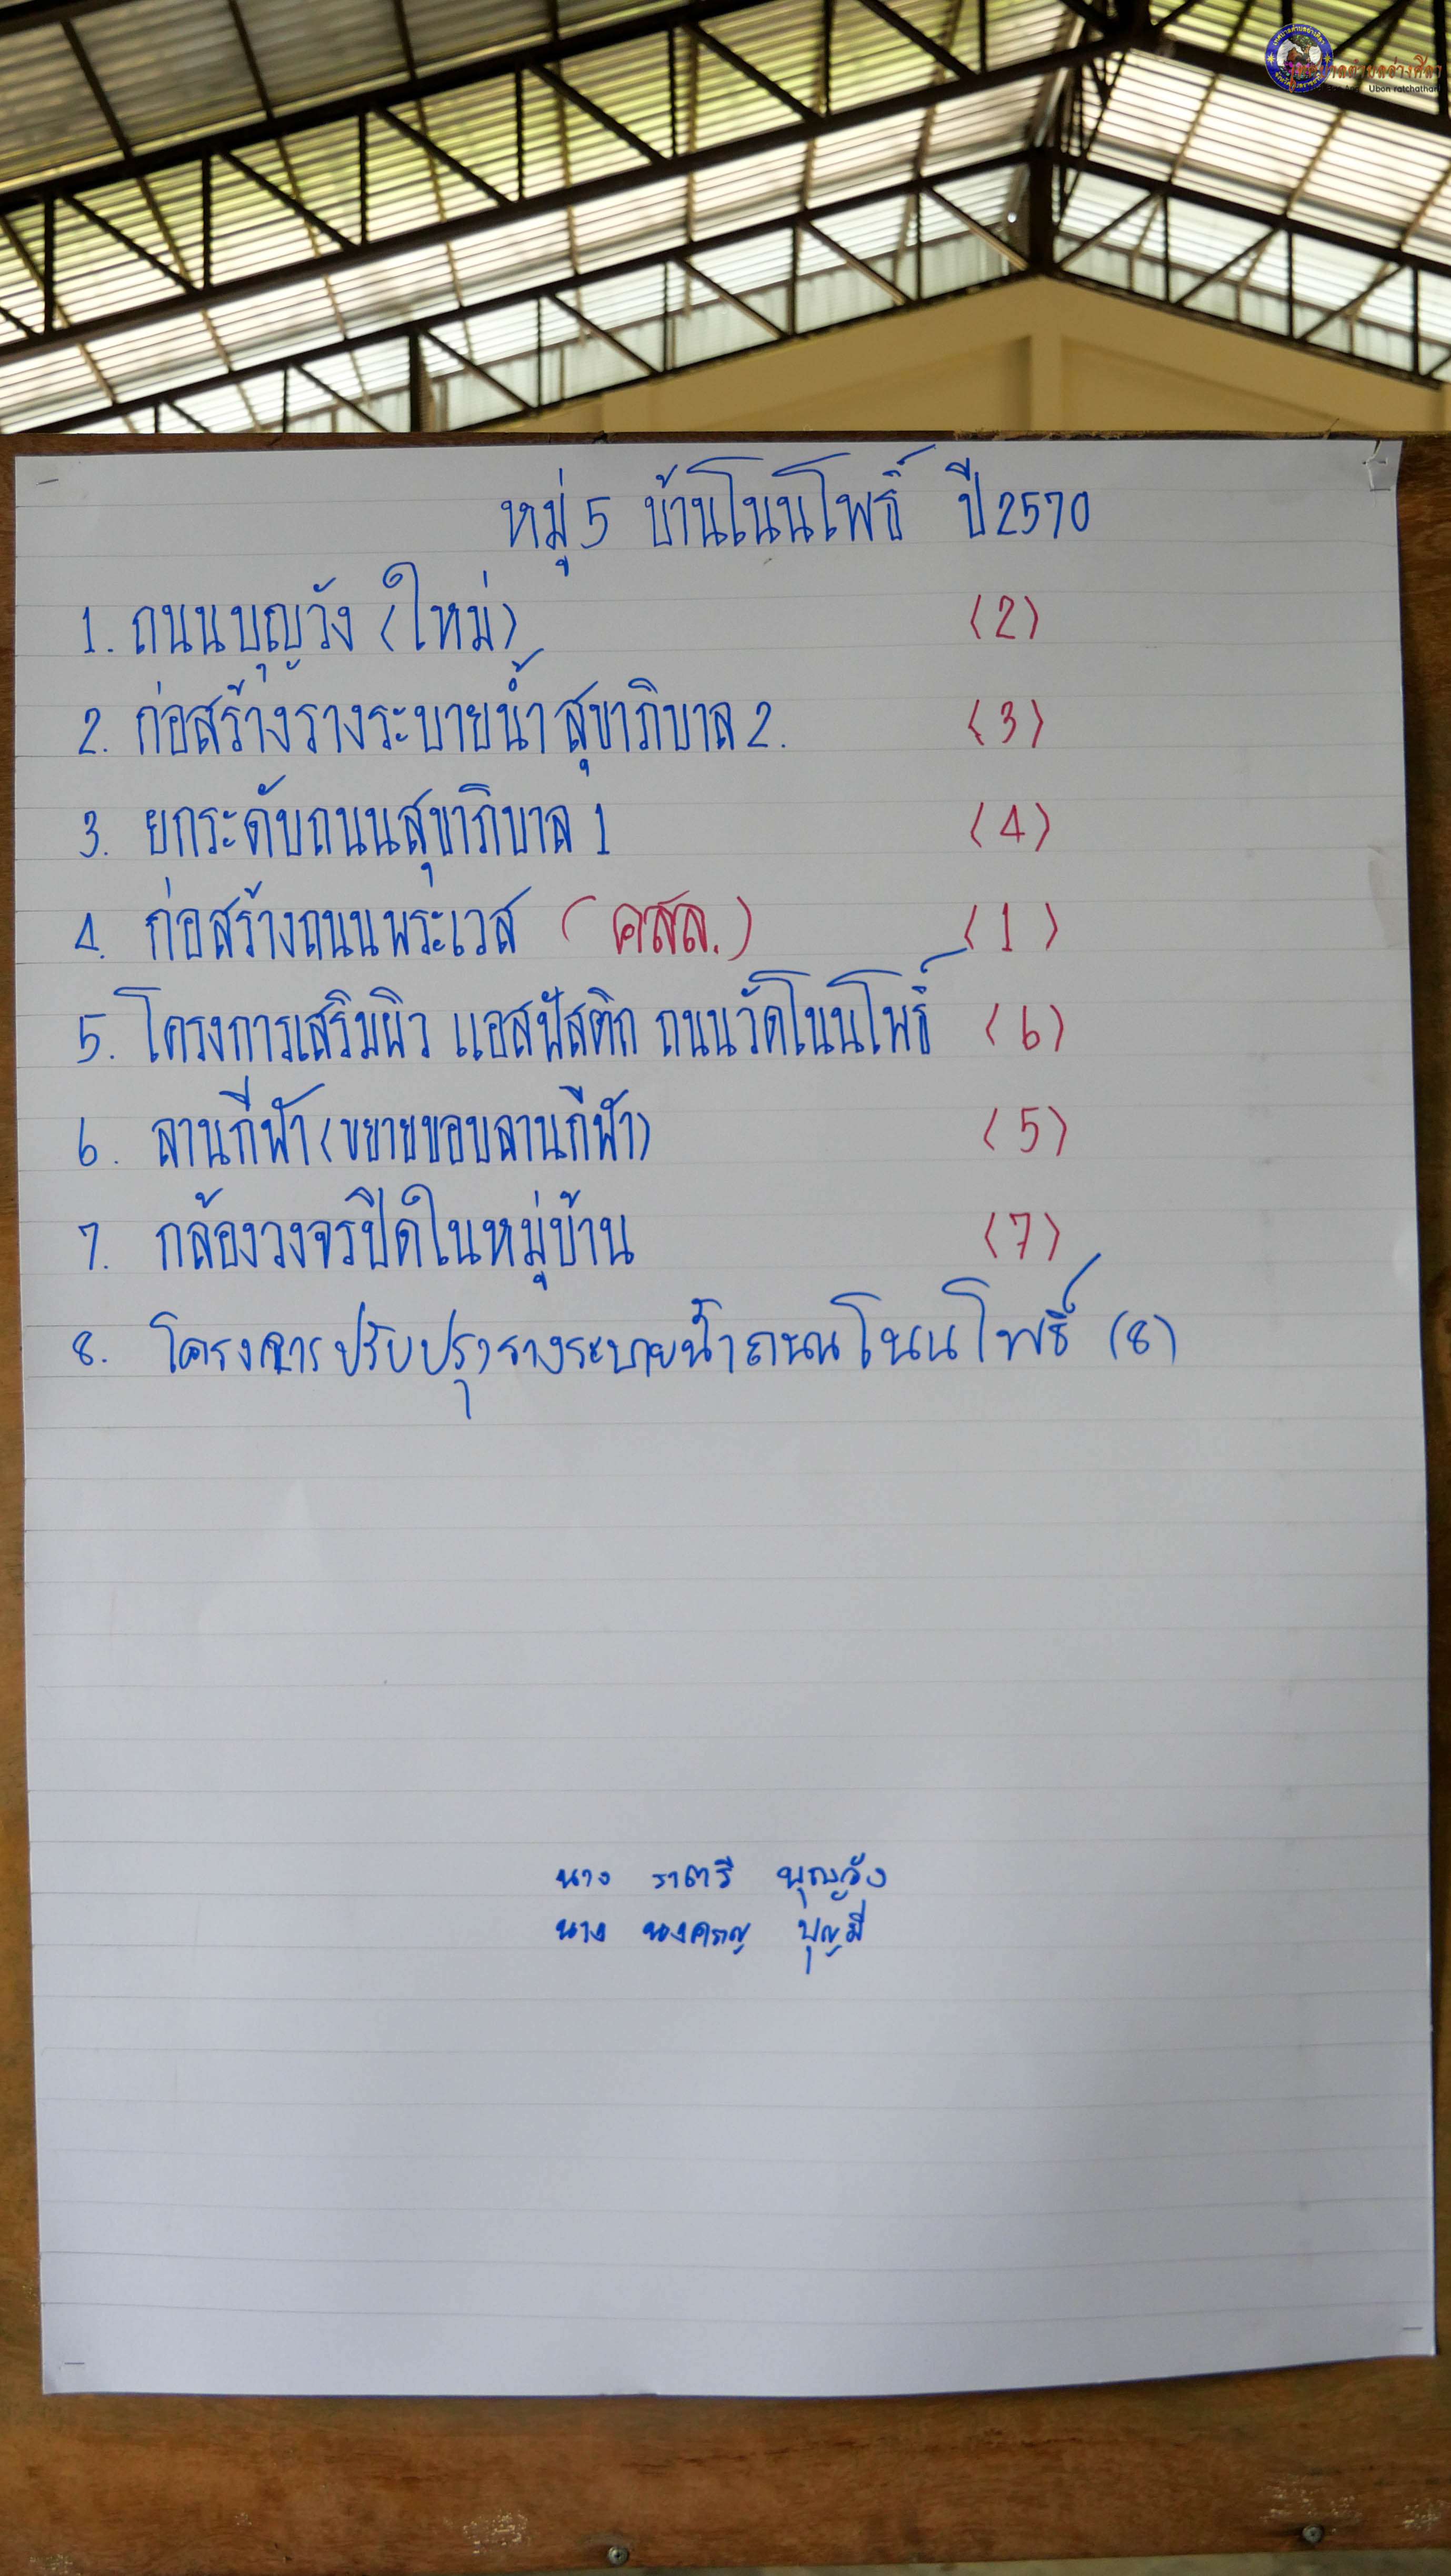 Ubon ratchathani
หมู่ 5 บ้านโนนโพธิ์ ปี 2570
1. ถนนบุญวัง (ใหม่) (2)
2. ก่อสร้างรางระบายน้ำ สุขาภิบาล 2. (3)
3. ยกระดับถนนสุขาภิบาล 1 (4)
4. ก่อสร้างถนนพระเวส (คสล.) (1)
5. โครงการเสริมผิว แอสฟัสติก ถนนวัดโนนโพธิ์ (6)
6. ลานกีฬา (ขยายขอบลานกีฬา) (5)
7. กล้องวงจรปิดในหมู่บ้าน (7)
8. โครงการปรับปรุงรางระบายน้ำถนนโนนโพธิ์ (8)
นาง ราตรี บุญวัง
นาง บุญมี